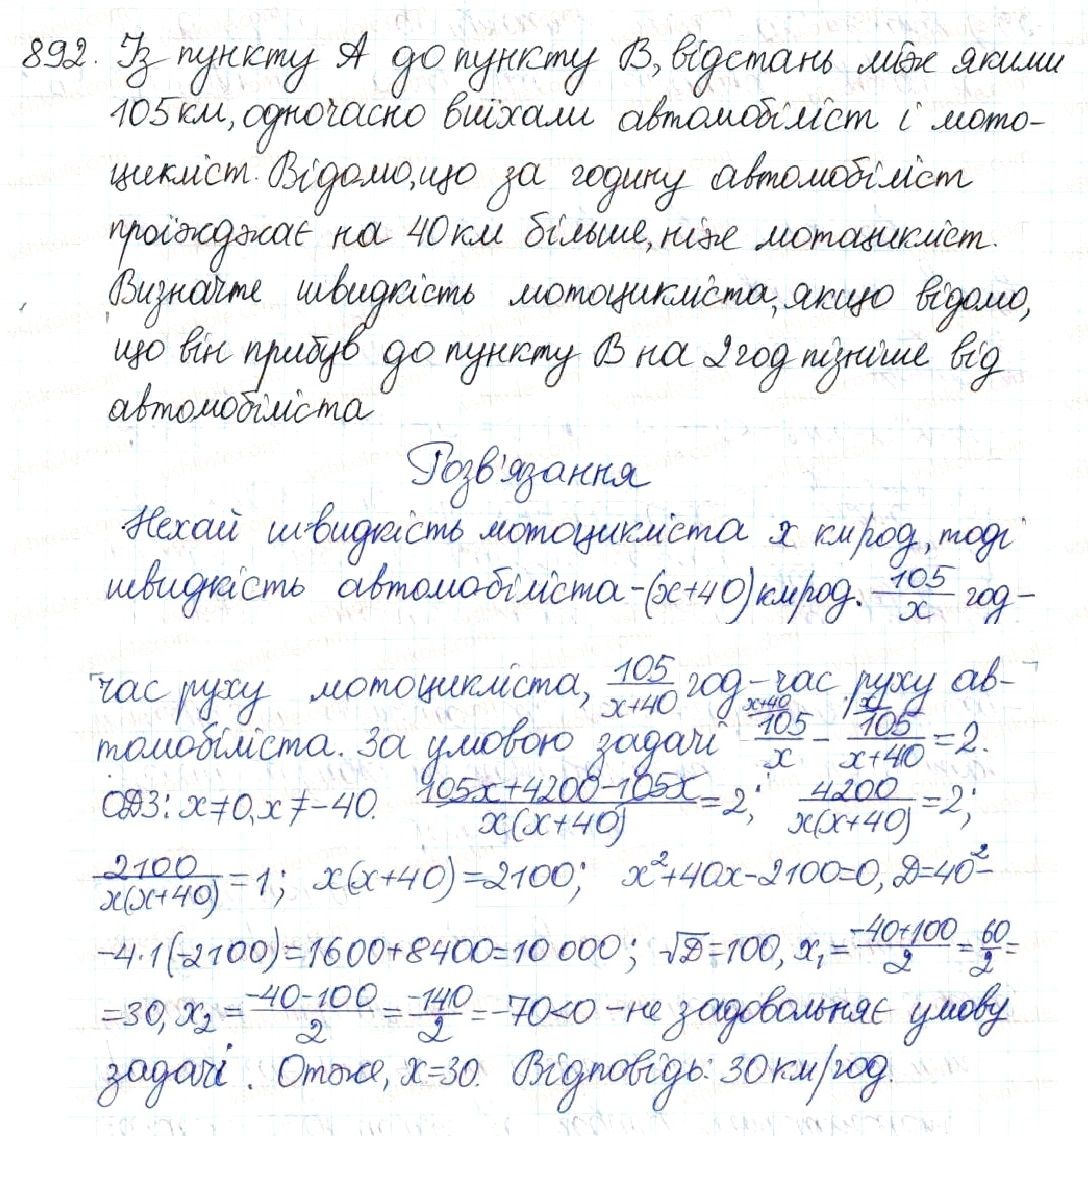 892. Із пункту А до пункту В, відстань між якими
105 км, одночасно виїхали автомобіліст і мото-
цикліст. Відомо, що за годину автомобіліст
проїжджає на 40 км більше, ніж мотоцикліст.
Визначте швидкість мотоцикліста, якщо відомо,
що він прибув до пункту В на 2 год пізніше від
автомобіліста
Розв'язання
Нехай швидкість мотоцикліста x км/год, тоді
швидкість автомобіліста - (x+40) км/год. 105/x год -
час руху мотоцикліста, 105/(x+40) год - час руху ав-
томобіліста. За умовою задачі 105/x - 105/(x+40) = 2.
ОДЗ: x≠0, x≠-40. (105x+4200-105x)/(x(x+40)) = 2; 4200/(x(x+40)) = 2;
2100/(x(x+40)) = 1; x(x+40)=2100; x²+40x-2100=0, D=40²-
-4·1(-2100)=1600+8400=10000; √D=100, x₁=(-40+100)/2=60/2=
=30, x₂=(-40-100)/2=-140/2=-70<0 - не задовольняє умову
задачі. Отже, x=30. Відповідь: 30 км/год.